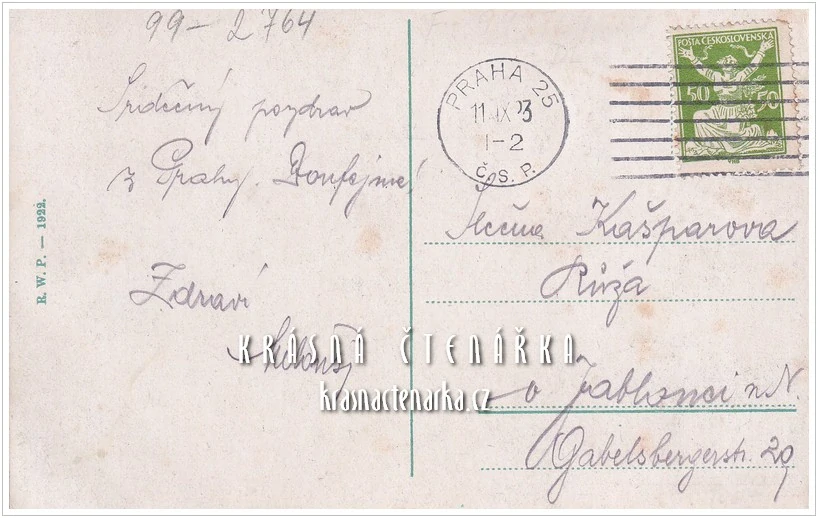 99-2764
Srdečný pozdrav
z Prahy.
Zdraví
R. W. P. — 1922.
PRAHA 25
11.IX 23
1-2
Č.S.P.
POŠTA ČESKOSLOVENSKÁ
50 50
Slečna Kašparova
Růža
v Jablonci n N.
Gabelsbergerstr. 29
KRÁSNÁ ČTENÁŘKA
krasnactenarka.cz